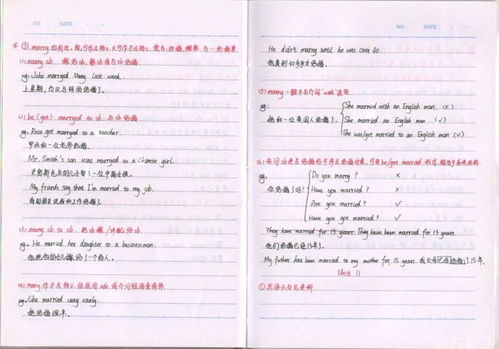 NO.     DATE
① marry的用法。既可作及物v，又可作不及物v，意为：结婚、嫁娶、与…结婚
(1) marry sb 嫁给sb，娶sb或与sb结婚
eg: John married Mary last week.
上星期，约翰与玛丽结婚。
(2) be (get) married to sb 与sb结婚
eg: Rose got married to a teacher.
罗丝和一位老师结婚。
Mr. Smith's son was married to a Chinese girl.
史密斯先生的儿子娶了一位中国女孩。
My friends say that I'm married to my job.
我的朋友说我和工作结婚。
(3) marry sb to sb 把sb嫁给sb
eg: He married his daughter to a businessman.
他把他的女儿嫁给了一个商人。
(4) marry 作不及物v，往往用adv.或介词短语来修饰
eg: She married very early.
她结婚很早。
NO.     DATE
He didn't marry until he was over 60.
他直到60多岁才结婚。
(5) marry 一般不与介词"with"连用
eg:
She married with an English man (×)
她和一位英国人结婚了。 She married an English man (√)
She was/got married to an English man. (√)
eg. Do you marry? ×
你结婚了吗？ Have you married? ×
Are you married? √
Have you got married? √
They have married for 13 years. They have been married for 13 years.
他们结婚已经13年了。
My father has been married to my mother for 15 years. 我父母已经结婚了15年。
Unit 11